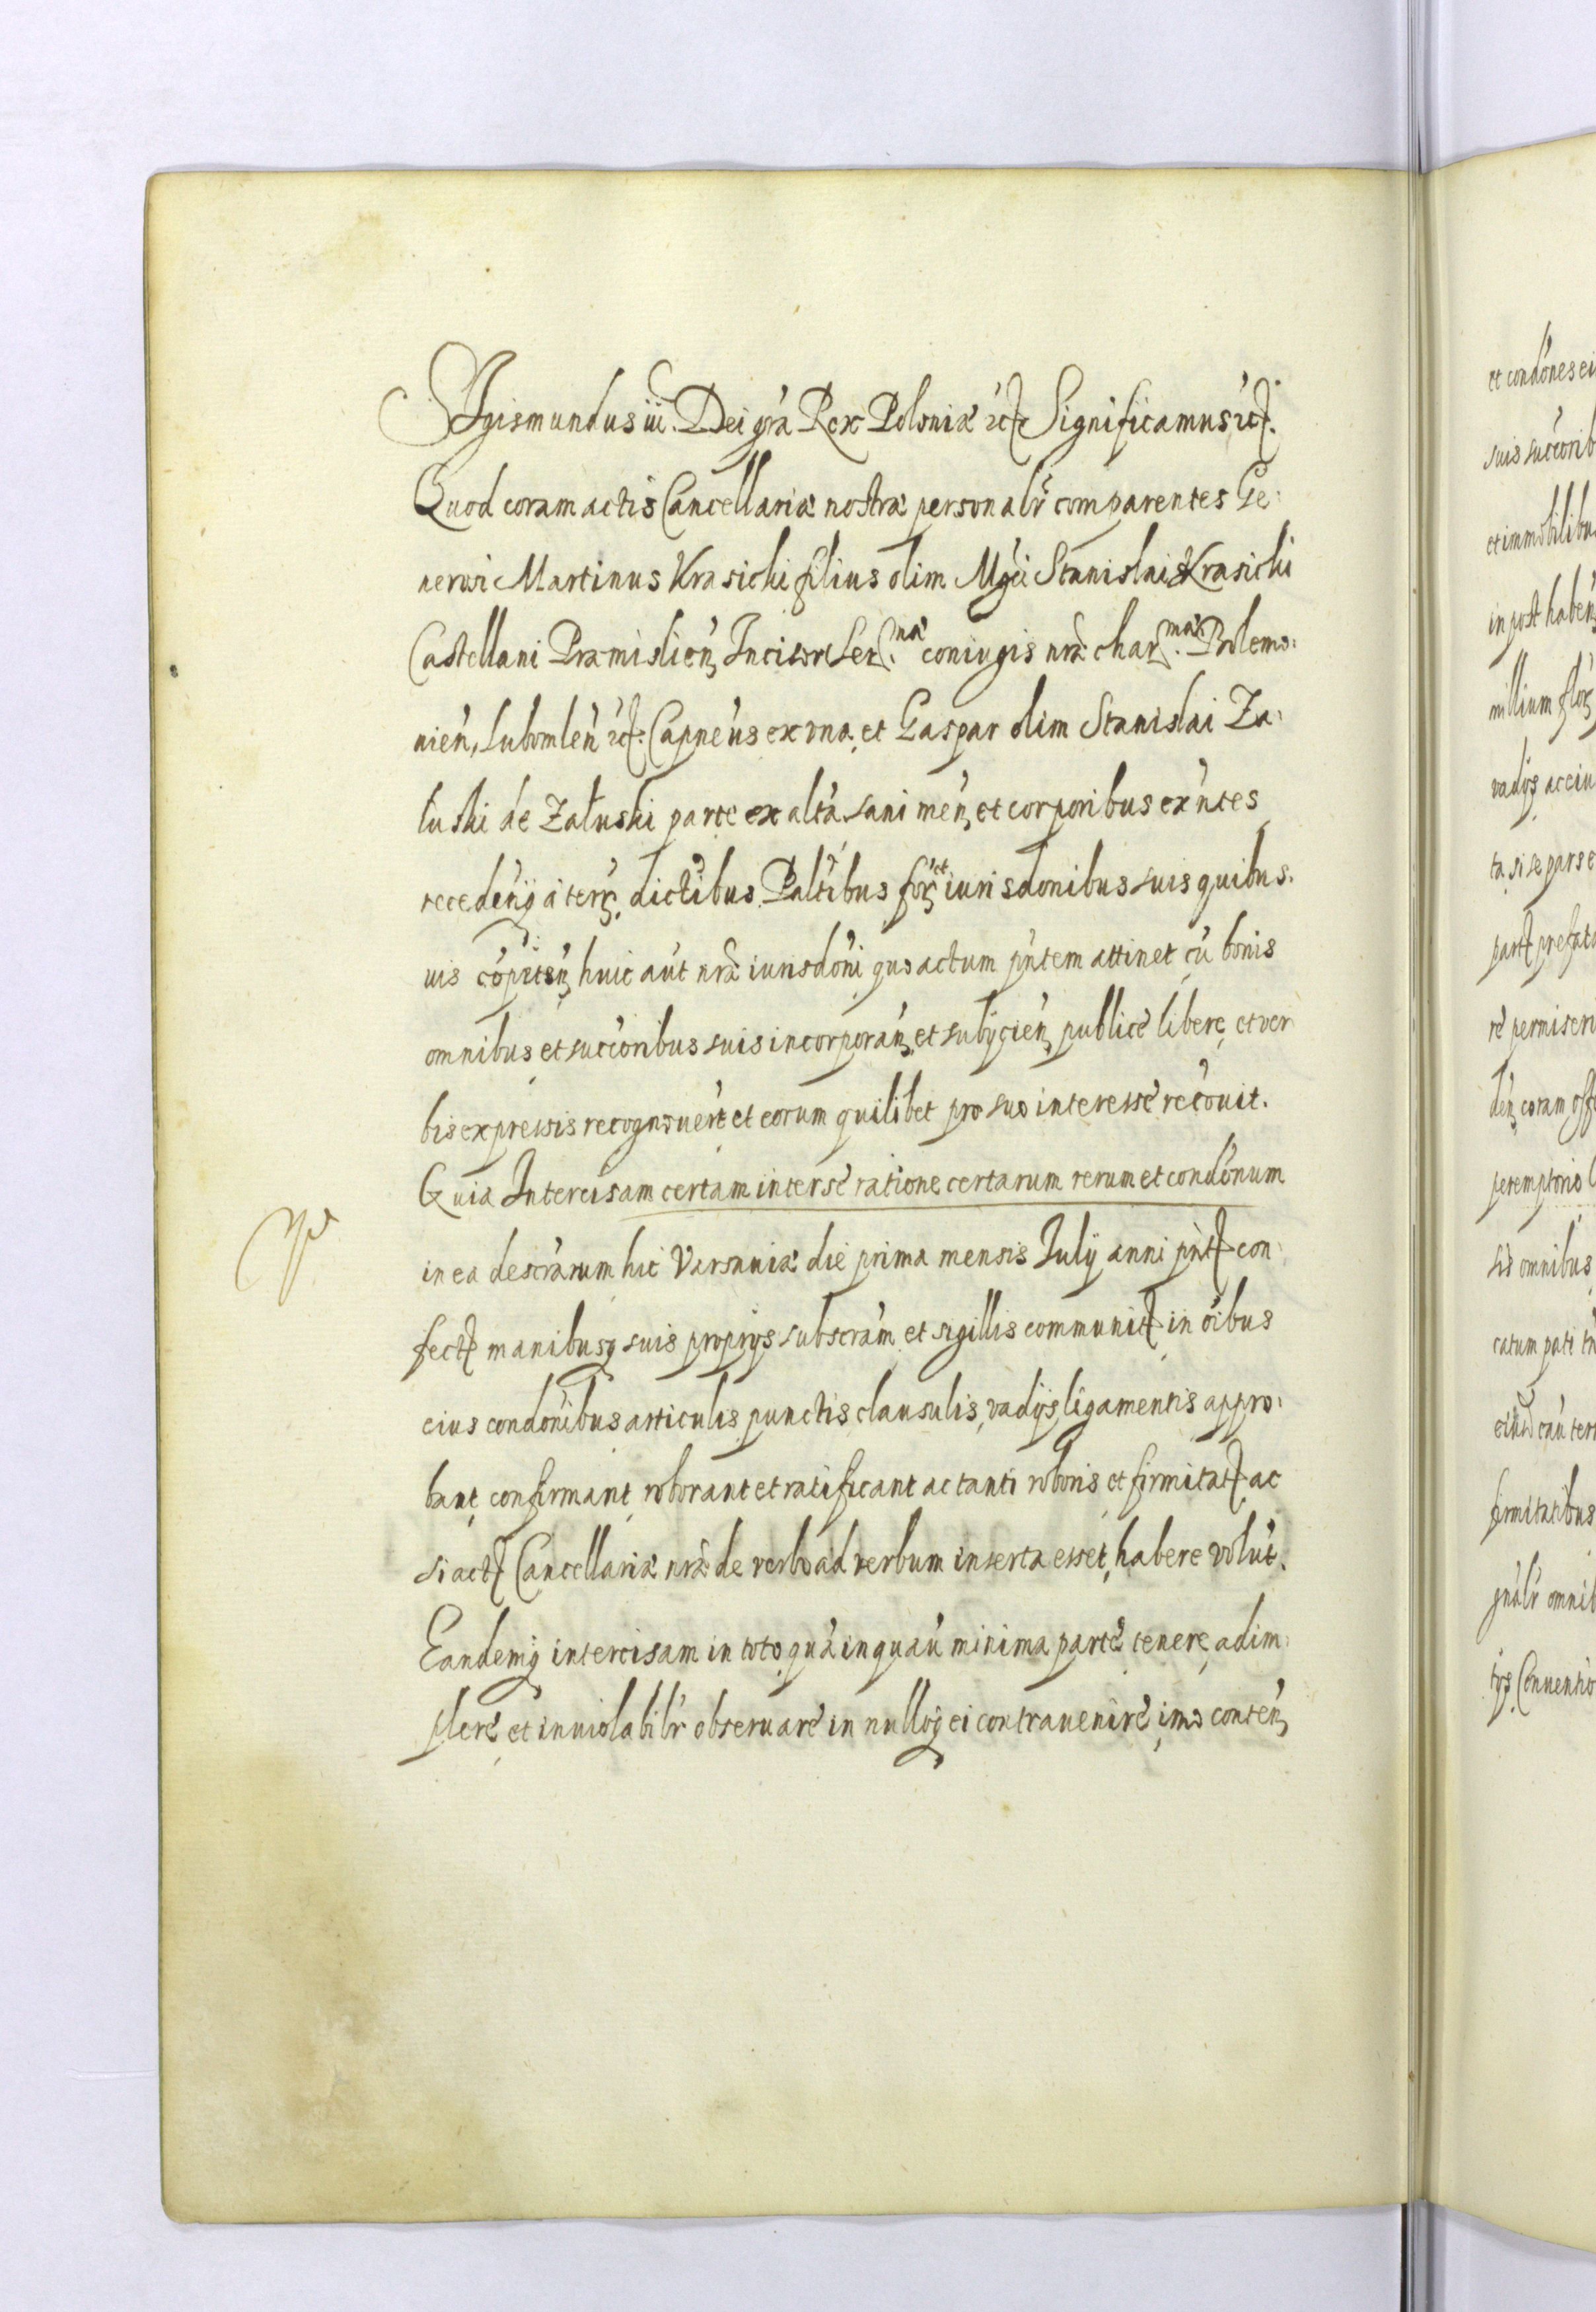 Sigismundus iii. Dei gra Rex Poloniæ etc Significamus etc.
Quod coram actis Cancellariæ nostræ personalr comparentes Ge:
nerosi Martinus Krasicki filius olim Mgci Stanislai Krasicki
Castellani Præmislien Incisor Ser.næ coniugis nræ char.mæ Bolemo:
nien, Lubomlen etc. Capneus ex vna, et Gaspar olim Stanislai Za:
luski de Załuski parte ex altá sani men et corporibus exntes
recedenq à terr, dictibus Paltibus for et iurisdonibus suis quibus:
uis copeten huic aut nræ iurisdoni quo actum pntem attinet cu bonis
omnibus et succoribus suis incorporan, et subijcien, publicè liberè, et ver
bis expressis recognouert et eorum quilibet pro suo interesse recouit.
Quia Intercisam certam inter se ratione certarum rerum et condonum
in ea descrarum hic Varsauiæ die prima mensis Iulij anni pnt con:
fect manibusq suis proprijs subscram et sigillis communit in oibus
eius condonibus articulis punctis clausulis, vadijs, ligamentis appro:
bant, confirmant, roborant et ratificant ac tanti roboris et firmitat, ac
si act Cancellariæ nræ de verbo ad verbum inserta esset, habere volut.
Eandemq intercisam in toto, quá in quau minima parte tenere, adim:
plere et inuiolabilr obseruare in nulloq ei contrauenire, imo conten
et condones ei
suis succorib
et immobilibu
in post haben
millium flor
vadijs ac ciu
ta, si se pars e
part prefata
re permiseri
den coram off
peremptorio
sis omnibus
catum pati tn
firmitatibus
gnalr omnib
ijs. Conuentio